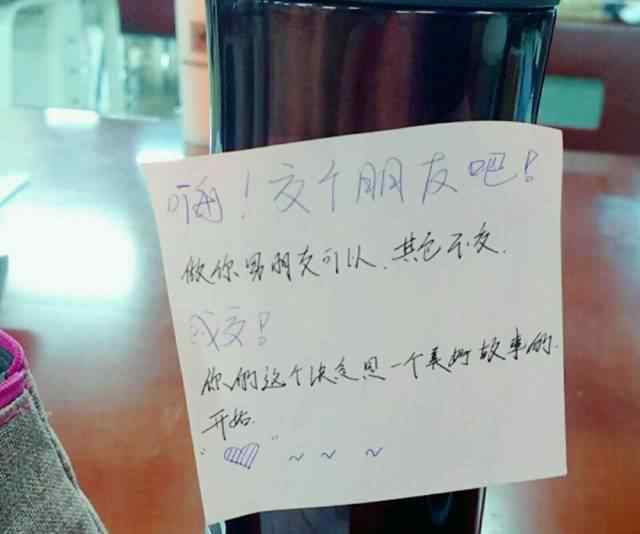 嗨！交个朋友吧！
做你男朋友可以、其它不交.
成交！
你们这个决定思一个美好故事的.
开始.
“ ” ~ ~ ~